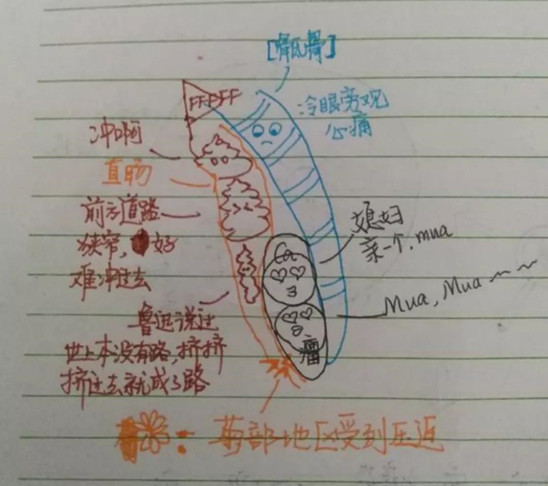 [骶骨]
FFFFF
冷眼旁观
心痛
冲啊
直肠
前方道路
狭窄,好
难冲过去
媳妇
亲一个.mua
Mua, Mua～～
鲁迅说过
世上本没有路,挤挤
挤过去就成了路
瘤
菊花: 菊部地区受到压迫